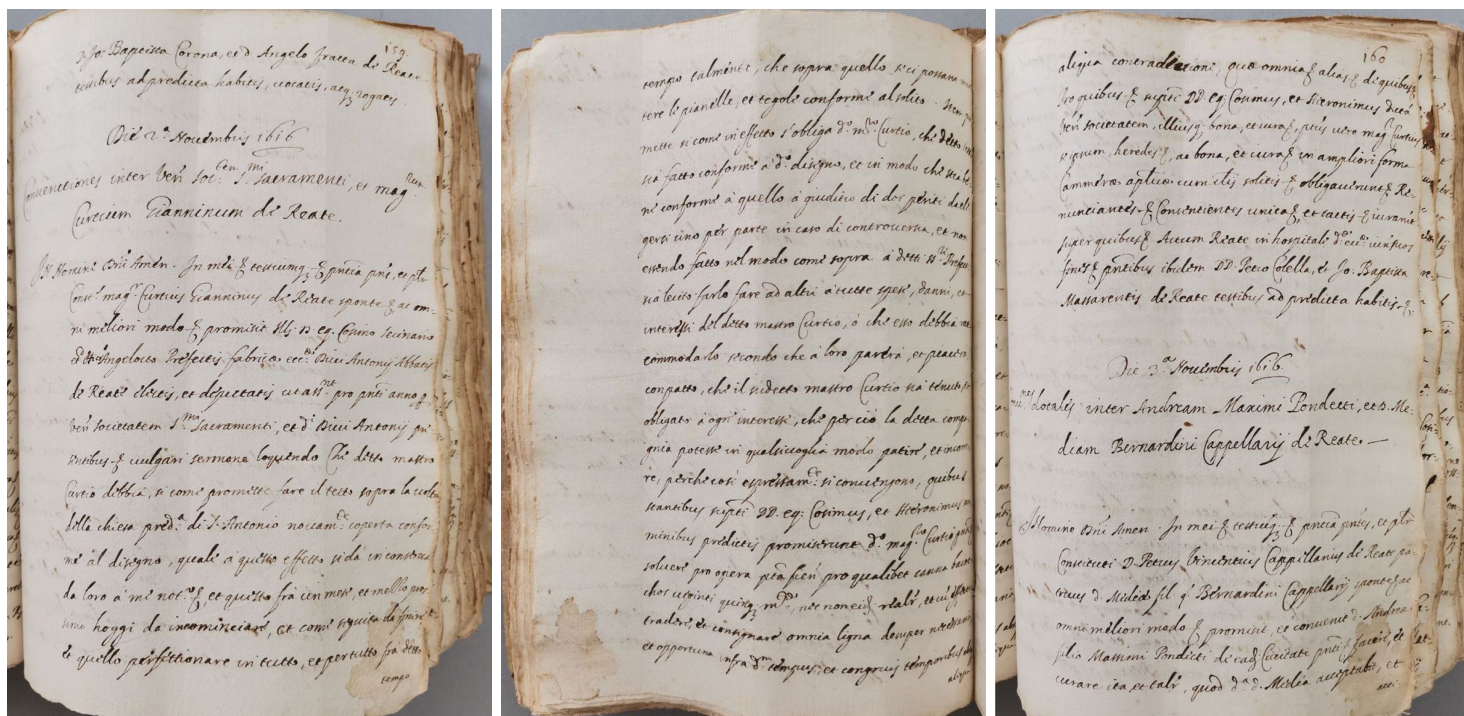 D. Jo: Baptista Corona, et d. Angelo Fratta de Reate
159
testibus ad predicta habitis, vocatis, atq; rogatis.
Die 2.a Novembris 1616
Conventiones inter Ven. Soc.em S.mi Sacramenti, et mag.
Curtium Gianninum de Reate.
In Nomine Dni Amen. In mei & testiumq; & pntia pnt, et plr
Const. mag.r Curtius Gianninus de Reate sponte & ac om-
ni meliori modo & promisit Ill: D. eq. Cosimo
Angelotto Prefectis fabrice ecc.e Divi Antonij Abbatis
de Reate electis, et deputatis ut pro pnti anno p
Ven. Societatem S.mi Sacramenti, et d. Divi Antonij pn-
sentibus & vulgari sermone loquendo Che detto mastro
Curtio debbia, si come promette fare il tetto sopra la volta
della chiesa pred.a di S. Antonio novam.te coperta confor-
me al disegno, quale a questo effetto si da in consegna
da loro a me not.o &, et questo frà un mese, et mezzo pros
simo hoggi da incominciare, et come seguita da finire
et quello perfettionare in tutto, et per tutto frà detto
tempo
tempo talmente, che sopra quello si ci possano
tere le pianelle, et tegole conforme al solito.
mette si come in effetto s'obliga d.o m.ro Curtio, che detto
sia fatto conforme a d.o disegno, et in modo che stia be-
ne conforme a quello à giuditio di doi periti da eli
gersi uno per parte in caso di controversa, et non
essendo fatto nel modo come sopra à detti
sia lecito farlo fare ad altri à tutte spese, danni, et
interessi del detto mastro Curtio, ò che esso debbia
commodarlo secondo che à loro parerà, et piacerà
con patto, che il sudetto mastro Curtio sia tenuto,
obligato à ogni interesse, che perciò la detta comp
gnia potesse in qualsivoglia modo patire, et incorr
re, perche così espressam.te si convengono, quibus
stantibus supti DD. eq. Cosimus, et Hieronimus
minibus predictis promiserunt d.o mag.ro Curtio
solvere pro opera pta fien. pro qualibet canna
chos viginti quinq; m.te, nec non ei & realr, et
tradere, et consignare omnia ligna
et opportuna infra d.m tempus, et congruis temporibus
aliqua
160
aliqua contradictione, quæ omnia & alias & de quibus
Pro quibus & supti DD. eq. Cosimus, et Hieronimus
Ven. societatem, illiusq; bona, et iura &, vero mag.r Curtius
se ipsum, heredes &, ac bona, et iura & in ampliori forma
Cammeræ aptlice cum solitis & obligaverunt & Re-
nunciantes & Consentientes unica &, et tactis & iurarunt
super quibus & Actum Reate in hospitale
fines & pntibus ibidem DD. Petro Colella, et Jo. Baptista
Massarentis de Reate testibus ad predicta habitis &
Die 3.a Novembris 1616
dotalis inter Andream Maximi Pondetti, et D. Me-
deam Bernardini Cappellarij de Reate
Nomine Dni Amen. In mei & testiuq; & pntia pntes, et plr
Constituti D. Petrus Vincentius Cappillarius de Reate pa-
truus d. Medeæ fil. q. Bernardini Cappellarij sponte & ac
omni meliori modo & promisit, et convenit d. Andreæ
filio Massimi Pondetti di ead. Civitate pnti & facere, et
curare ita, et talr, quod d.a d. Medea acceptabit, et